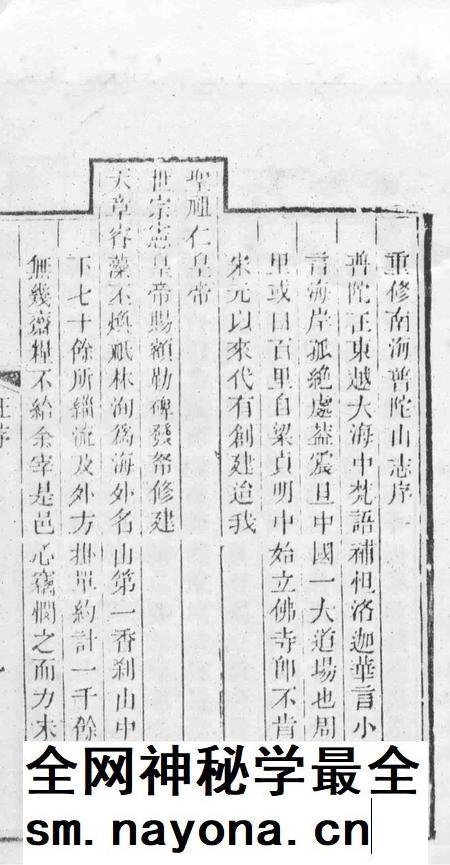 重修南海普陀山志序
普陀在東越大海中梵語補怛洛迦華言小
言海岸孤絶處葢震旦中國一大道場也周
里或曰百里自梁貞明中始立佛寺卽不肯
宋元以來代有創建迨我
聖祖仁皇帝
世宗憲皇帝賜額勒碑發帑修建
天章睿藻丕煥祇林洵爲海外名山第一香刹山中
下七十餘所緇流及外方掛單約計一千餘
無幾齋糧不給余宰是邑心竊憫之而力未
全网神秘学最全
sm.nayona.cn